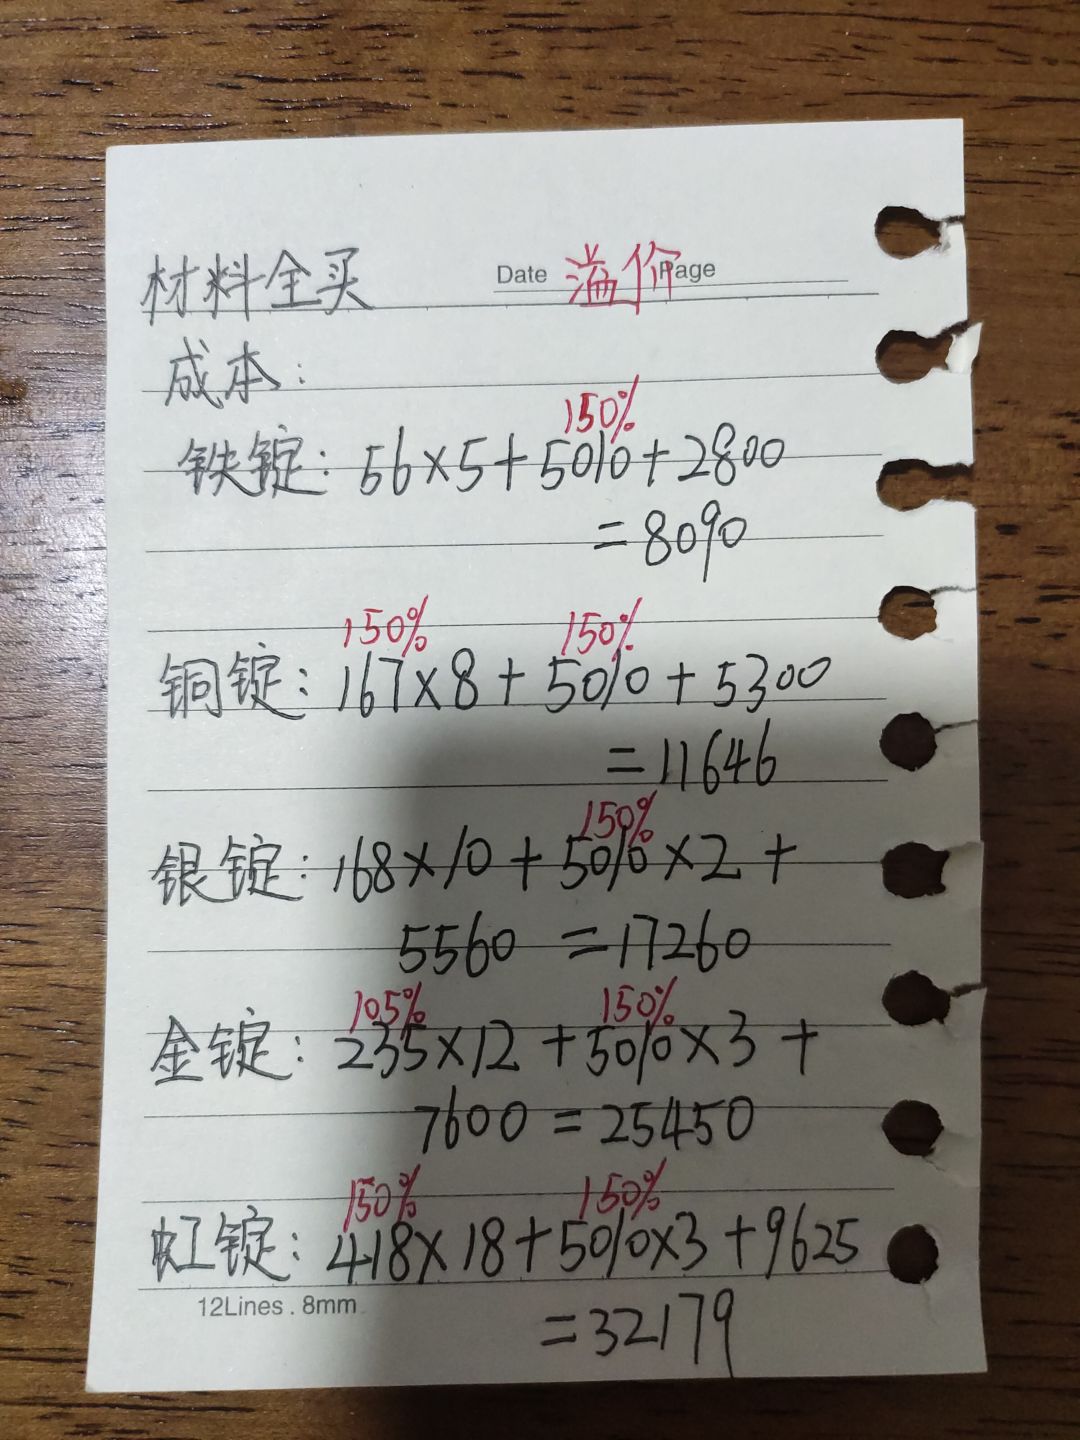 材料全买
Date 溢价 Page
成本:
150%
铁锭: 56×5+5010+2800
=8090
150% 150%
铜锭: 167×8+5010+5300
=11646
150%
银锭: 168×10+5010×2+
5560 =17260
105% 150%
金锭: 235×12+5010×3+
7600=25450
150% 150%
虹锭: 418×18+5010×3+9625
12Lines . 8mm
=32179